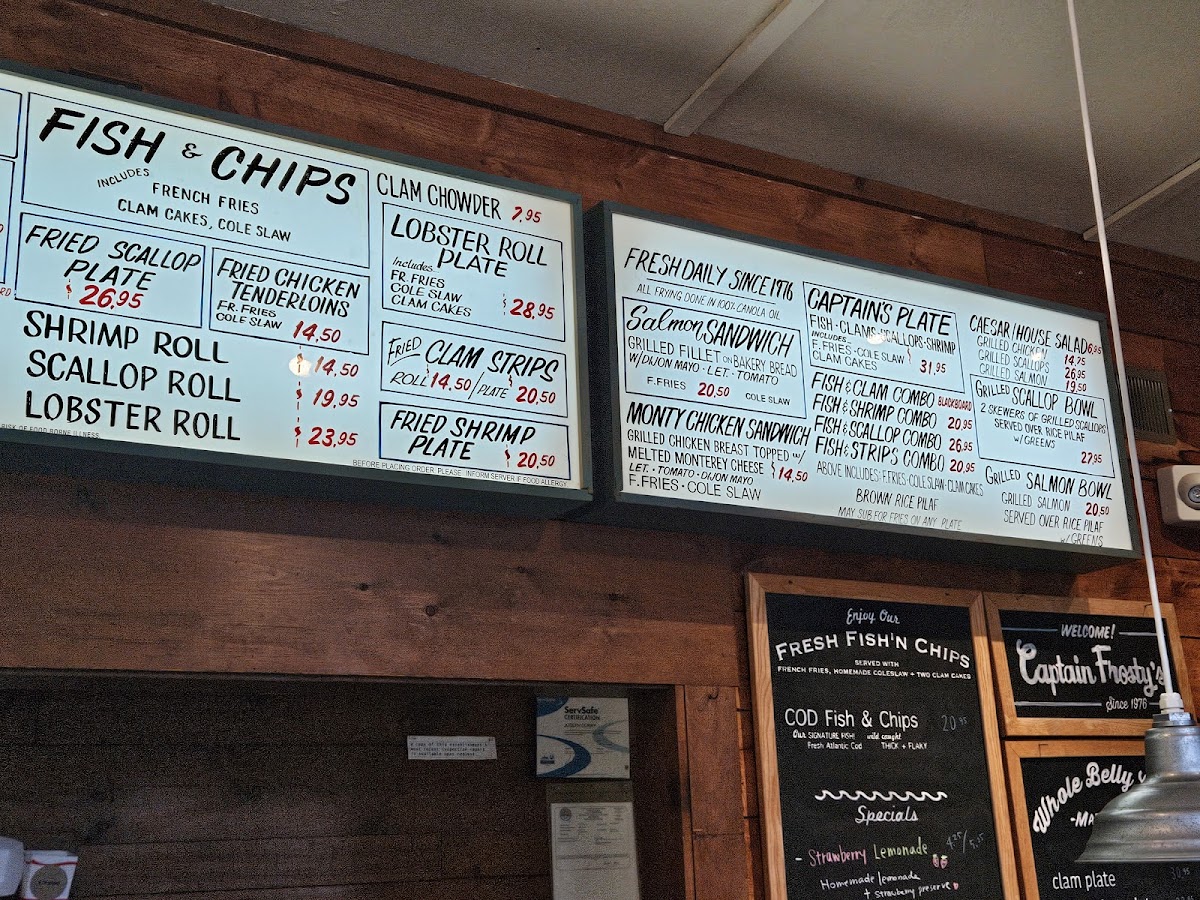 FISH & CHIPS
INCLUDES
FRENCH FRIES
CLAM CAKES, COLE SLAW
FRIED SCALLOP
PLATE
$26.95
FRIED CHICKEN
TENDERLOINS
FR. FRIES
COLE SLAW 14.50
SHRIMP ROLL $14.50
SCALLOP ROLL $19.95
LOBSTER ROLL $23.95
RISK OF FOOD BORNE ILLNESS
CLAM CHOWDER 7.95
LOBSTER ROLL
PLATE
Includes...
FR. FRIES
COLE SLAW
CLAM CAKES $28.95
FRIED CLAM STRIPS
ROLL $14.50 / PLATE $20.50
FRIED SHRIMP
PLATE $20.50
BEFORE PLACING ORDER, PLEASE INFORM SERVER IF FOOD ALLERGY
FRESH DAILY SINCE 1976
ALL FRYING DONE IN 100% CANOLA OIL
Salmon SANDWICH
GRILLED FILLET ON BAKERY BREAD
W/DIJON MAYO · LET. · TOMATO
F.FRIES 20.50 COLE SLAW
MONTY CHICKEN SANDWICH
GRILLED CHICKEN BREAST TOPPED w/
MELTED MONTEREY CHEESE $14.50
LET. · TOMATO · DIJON MAYO
F.FRIES · COLE SLAW
CAPTAIN'S PLATE
FISH · CLAMS · SCALLOPS · SHRIMP
INCLUDES...
F. FRIES · COLE SLAW
CLAM CAKES $31.95
FISH & CLAM COMBO BLACKBOARD
FISH & SHRIMP COMBO 20.95
FISH & SCALLOP COMBO 26.95
FISH & STRIPS COMBO 20.95
ABOVE INCLUDES: F.FRIES · COLE SLAW · CLAM CAKES
BROWN RICE PILAF
MAY SUB FOR FRIES ON ANY PLATE
CAESAR/HOUSE SALAD 6.95
GRILLED CHICKEN 14.75
GRILLED SCALLOPS 26.95
GRILLED SALMON 19.50
GRILLED SCALLOP BOWL
2 SKEWERS OF GRILLED SCALLOPS
SERVED OVER RICE PILAF
w/GREENS
27.95
GRILLED SALMON BOWL
GRILLED SALMON 20.50
SERVED OVER RICE PILAF
w/GREENS
Enjoy Our
FRESH FISH'N CHIPS
SERVED WITH
FRENCH FRIES, HOMEMADE COLESLAW + TWO CLAM CAKES
COD Fish & Chips 20.95
Our SIGNATURE FISH! wild caught
Fresh Atlantic Cod THICK + FLAKY
Specials
- Strawberry Lemonade 4.25/5.25
Homemade lemonade
+ strawberry preserve
WELCOME!
Captain Frosty's
Since 1976
Whole Belly
clam plate
ServSafe
CERTIFICATION